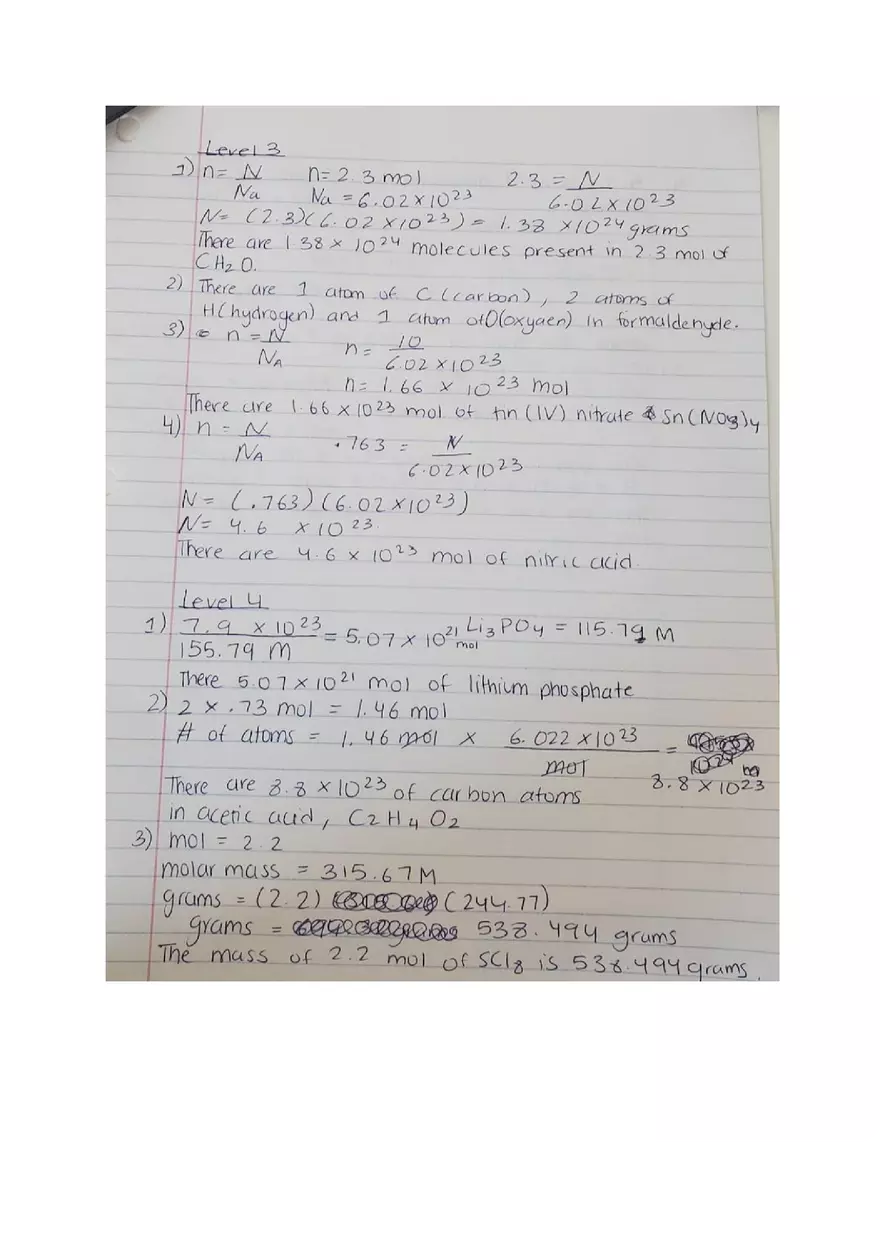 Level 3
1) n = N/Na n = 2.3 mol 2.3 = N/6.02 x 10^23
Na = 6.02 x 10^23
N = (2.3)(6.02 x 10^23) = 1.38 x 10^24 grams
There are 1 38 x 10^24 molecules present in 2 3 mol of
CH2O.
2) There are 1 atom of C (carbon), 2 atoms of
H(hydrogen) and 1 atom of O(oxyaen) in formaldehyde.
3) n = N/NA n = 10/6.02 x 10^23
n = 1.66 x 10^23 mol
There are 1.66 x 10^23 mol of tin (IV) nitrate Sn(NO3)4
4) n = N/NA .763 = N/6.02 x 10^23
N = (.763)(6.02 x 10^23)
N = 4.6 x 10^23.
There are 4.6 x 10^23 mol of nitric acid.
Level 4
1) 7.9 x 10^23/155.79 M = 5.07 x 10^21 mol Li3PO4 = 115.79 M
There 5.07 x 10^21 mol of lithium phosphate
2) 2 x .73 mol = 1.46 mol
# of atoms = 1.46 mol x 6.022 x 10^23/mol =
8.8 x 10^23
There are 8.8 x 10^23 of carbon atoms
in acetic acid, C2H4O2
3) mol = 2.2
molar mass = 315.67M
grams = (2.2) (244.77)
grams = 538.494 grams
The mass of 2.2 mol of SCl8 is 538.494 grams.